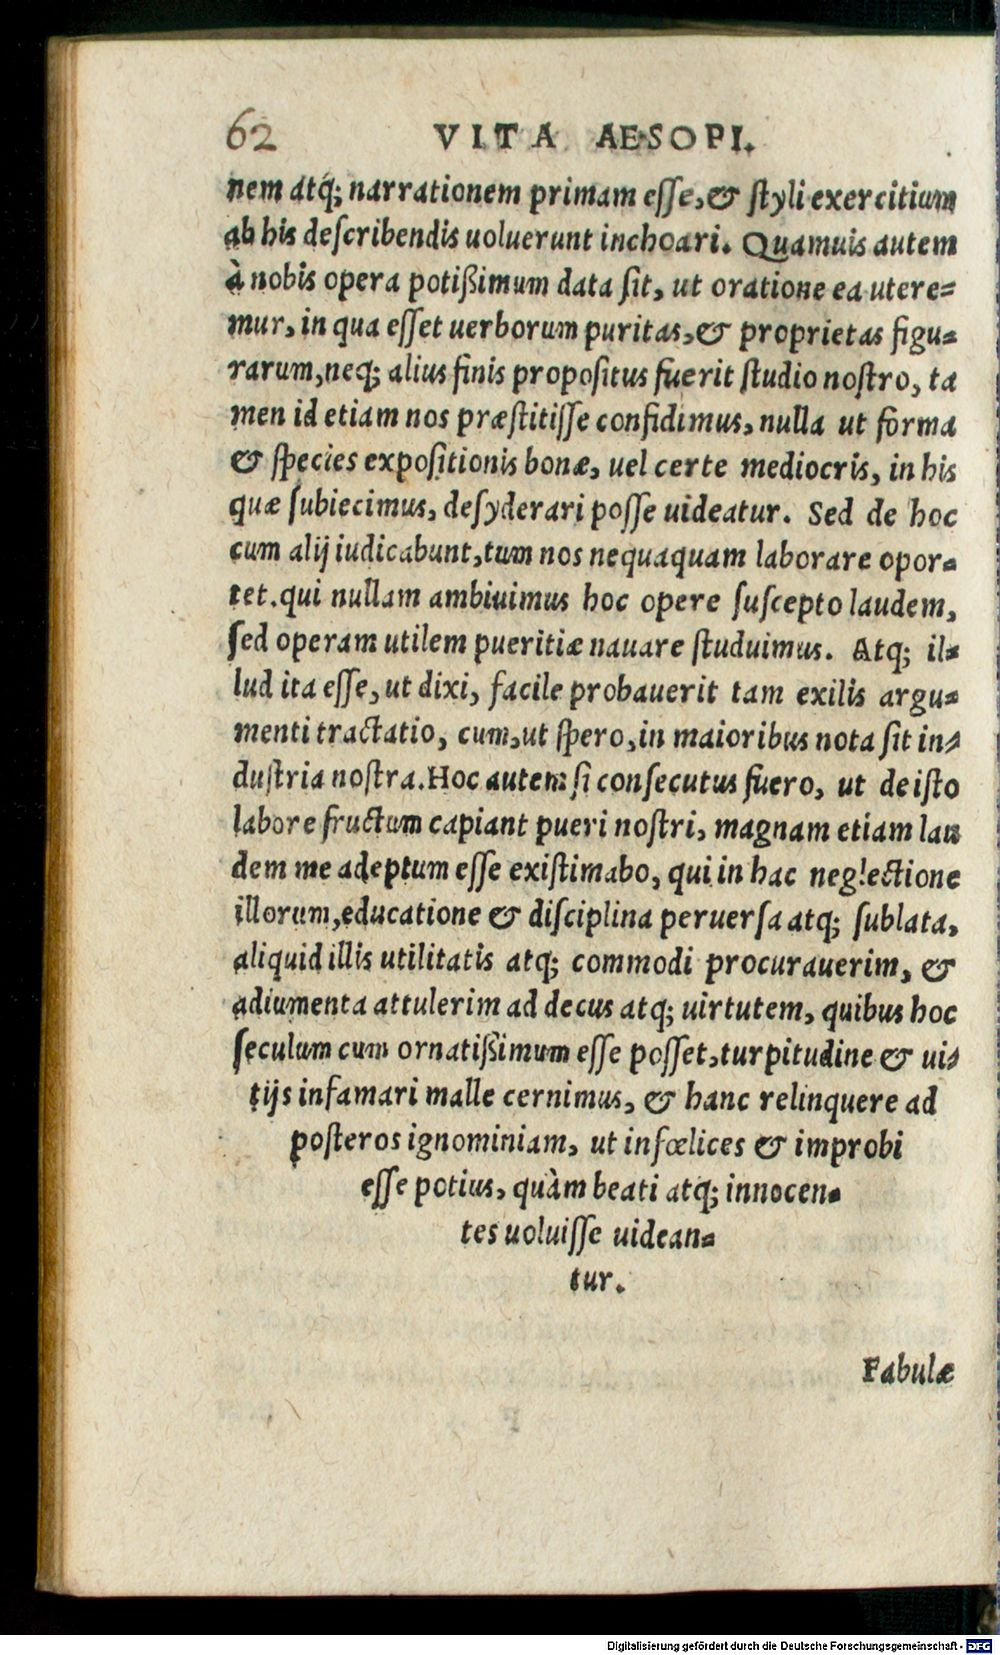 62 VITA AESOPI.
nem atq; narrationem primam esse, & styli exercitium
ab his describendis uoluerunt inchoari. Quamuis autem
à nobis opera potißimum data sit, ut oratione ea utere=
mur, in qua esset uerborum puritas, & proprietas figu=
rarum, neq; alius finis propositus fuerit studio nostro, ta
men id etiam nos præstitisse confidimus, nulla ut forma
& species expositionis bonæ, uel certe mediocris, in his
quæ subiecimus, desyderari posse uideatur. Sed de hoc
cum alij iudicabunt, tum nos nequaquam laborare opor=
tet. qui nullam ambiuimus hoc opere suscepto laudem,
sed operam utilem pueritiæ nauare studuimus. Atq; il=
lud ita esse, ut dixi, facile probauerit tam exilis argu=
menti tractatio, cum, ut spero, in maioribus nota sit in=
dustria nostra. Hoc autem si consecutus fuero, ut de isto
labore fructum capiant pueri nostri, magnam etiam lau
dem me adeptum esse existimabo, qui in hac neglectione
illorum, educatione & disciplina peruersa atq; sublata,
aliquid illis utilitatis atq; commodi procurauerim, &
adiumenta attulerim ad decus atq; uirtutem, quibus hoc
seculum cum ornatißimum esse posset, turpitudine & ui=
tijs infamari malle cernimus, & hanc relinquere ad
posteros ignominiam, ut infœlices & improbi
esse potius, quàm beati atq; innocen=
tes uoluisse uidean=
tur.
Fabulæ
Digitalisierung gefördert durch die Deutsche Forschungsgemeinschaft - DFG